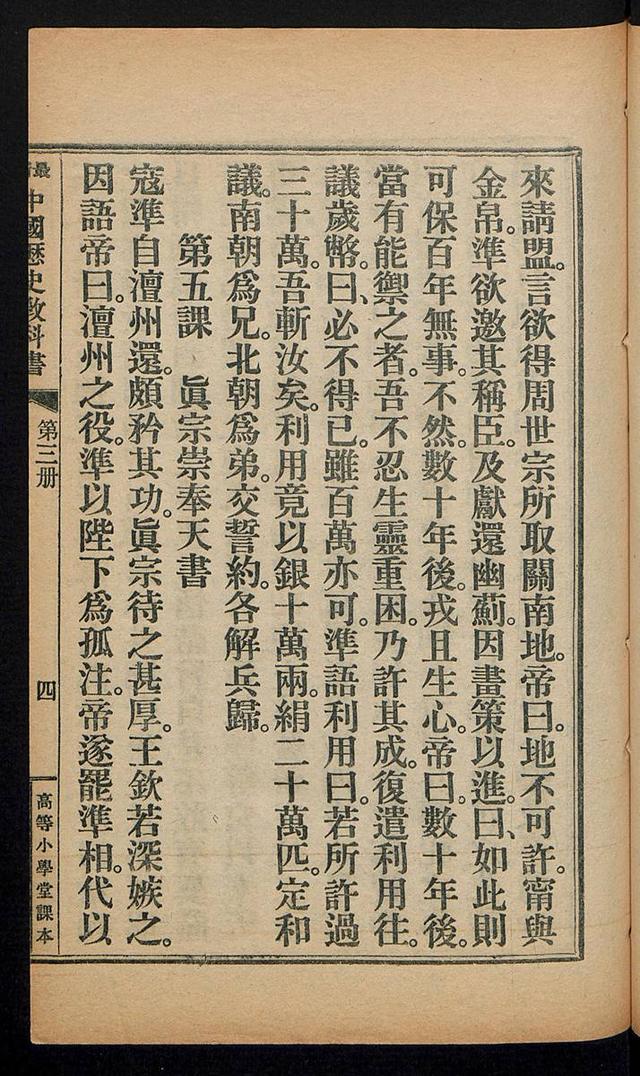 來請盟。言欲得周世宗所取關南地。帝曰。地不可許。甯與
金帛。準欲邀其稱臣。及獻還幽薊。因畫策以進。曰、如此則
可保百年無事。不然。數十年後。戎且生心。帝曰。數十年後。
當有能禦之者。吾不忍生靈重困。乃許其成。復遣利用往。
議歲幣。曰、必不得已。雖百萬亦可。準語利用曰。若所許過
三十萬。吾斬汝矣。利用竟以銀十萬兩。絹二十萬匹。定和
議。南朝爲兄。北朝爲弟。交誓約。各解兵歸。
第五課　眞宗崇奉天書
寇準自澶州還。頗矜其功。眞宗待之甚厚。王欽若深嫉之。
因語帝曰。澶州之役。準以陛下爲孤注。帝遂罷準相。代以
最新中國歷史教科書　第三册　四　高等小學堂課本